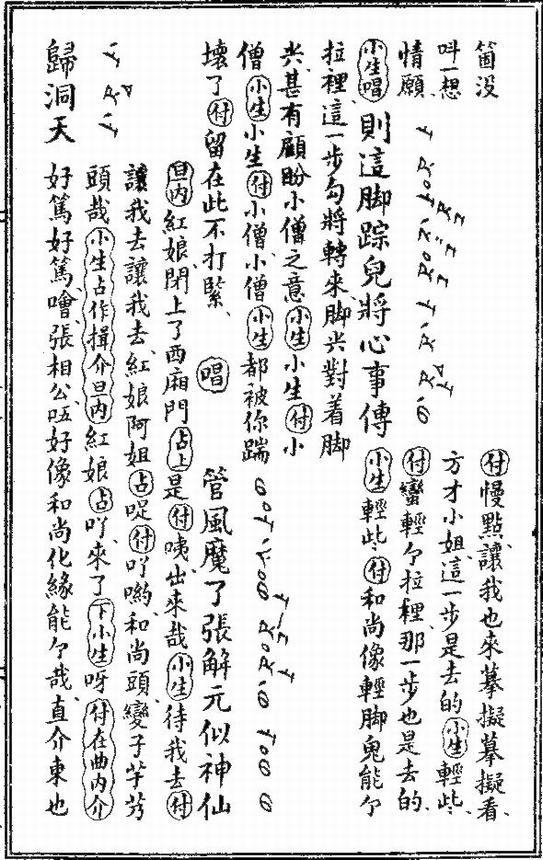 箇没
呌一想
情願
小生唱 則這脚踪兒將心事傳
付慢點讓我也來摹擬摹擬看
方才小姐這一步是去的小生輕些
付蠻輕个拉裡那一步也是去的
小生輕些付和尚像輕脚鬼能个
拉裡這一步勾將轉來脚尖對着脚
尖甚有顧盼小僧之意小生小生付小
僧小生小生付小僧小僧小生都被你踹
壞了付留在此不打緊 唱 管風魔了張解元似神仙
歸洞天
旦内紅娘閉上了西廂門占上是付咦出來哉小生待我去付
讓我去讓我去紅娘阿姐占啶付吖喲和尚頭變子芋艿
頭哉小生占作揖介旦内紅娘占吖來了下小生呀付在曲内介
好篤好篤噲張相公好像和尚化緣能个哉直介東也